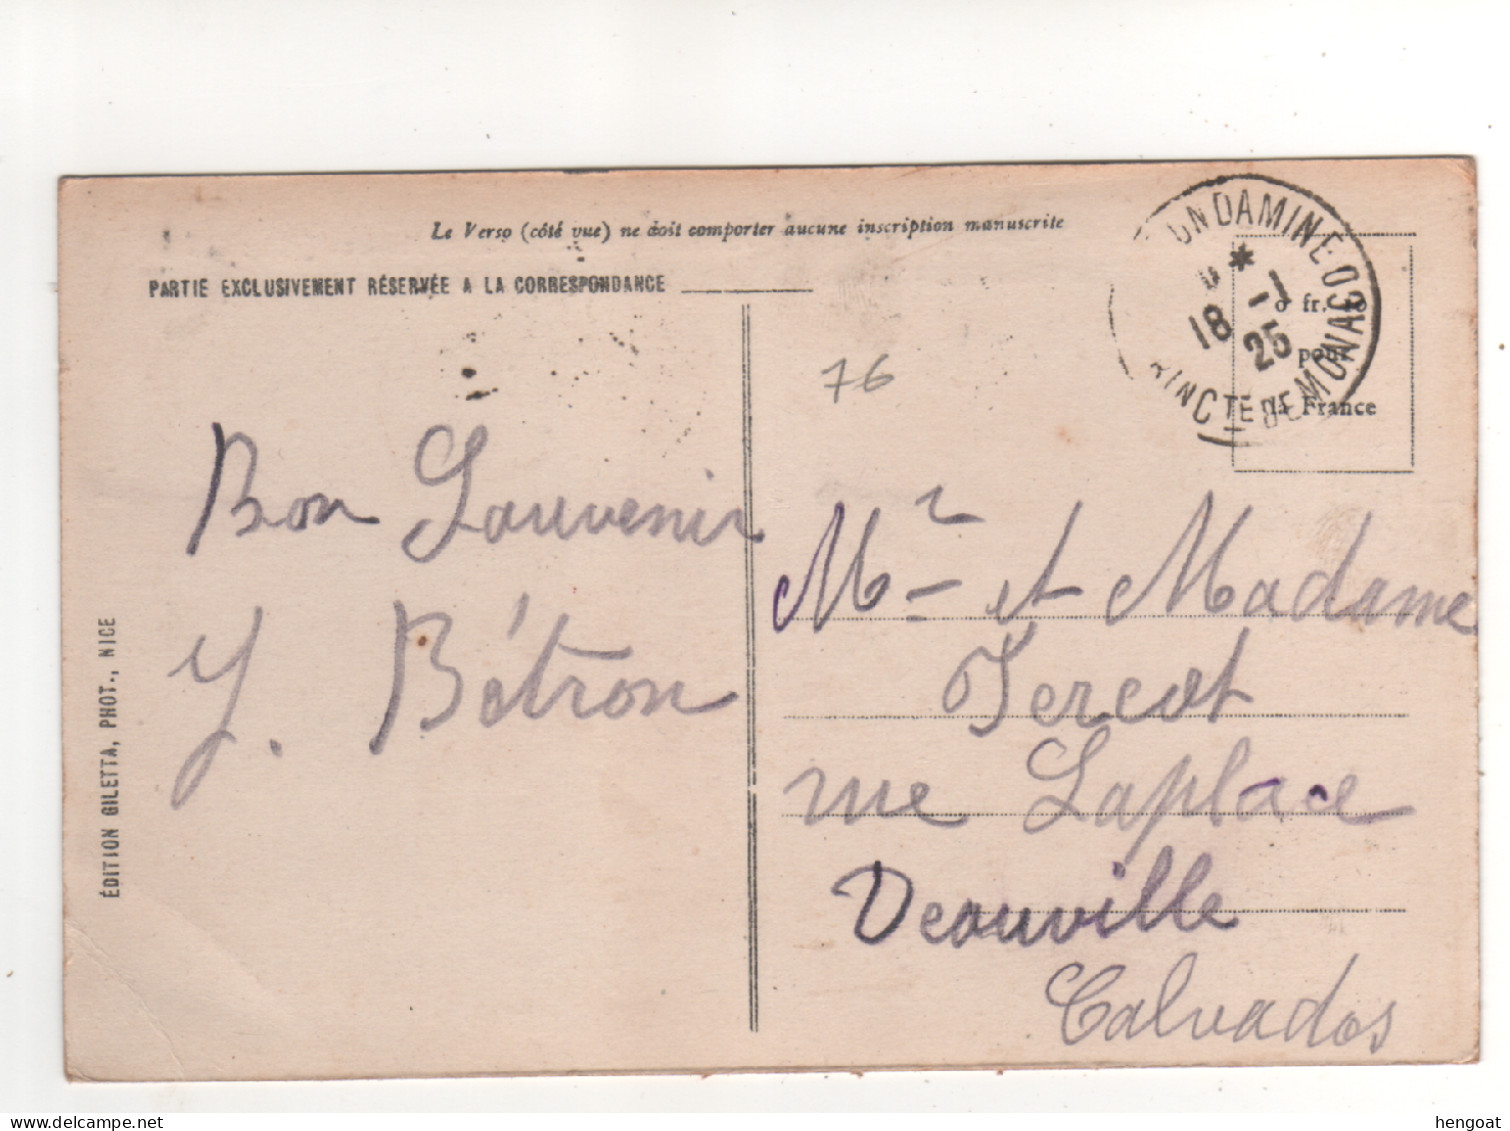 Le Verso (côté vue) ne doit comporter aucune inscription manuscrite
PARTIE EXCLUSIVEMENT RÉSERVÉE A LA CORRESPONDANCE
ONDAMINE
18 -1
25
RINCTE DE MONACO
o fr.
pour
la France
76
Bon Souvenir
Y. Bétron
ÉDITION GILETTA, PHOT., NICE
Mr et Madame
Tercot
rue Laplace
Deauville
Calvados
delcampe.net
hengoat